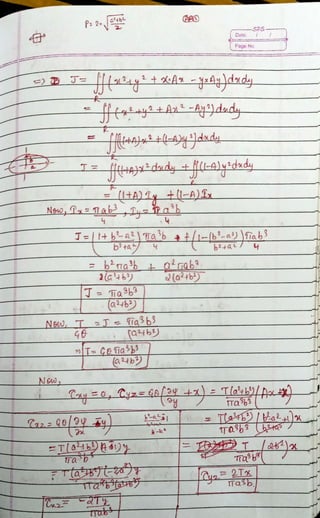 P = 2π√(a²+b²)/2
Date: / /
Page No.
=> J = ∬(x²+y² + x·Ax - y×Ay)dxdy
R
= ∬(x²+y² + Ax² - Ay²)dxdy
R
= ∬((1+A)x² + (1-A)y²)dxdy
R
J = ∬(1+A)x²dxdy + ∬(1-A)y²dxdy
R R
= (1+A)Iy + (1-A)Ix
Now, Ix = πab³/4, Iy = πa³b/4
J = (1 + (b²-a²)/(b²+a²)) πa³b/4 + (1 - (b²-a²)/(b²+a²)) πab³/4
= b²πa³b/2(a²+b²) + a²πab³/2(a²+b²)
J = πa³b³/(a²+b²)
Now, T/Gθ = J = πa³b³/(a²+b²)
=> T = Gθπa³b³/(a²+b²)
Now,
τxy = 0, τyz = Gθ(∂ψ/∂y + x) = T(a²+b²)/πa³b³ (Ax+x)
τxz = Gθ(∂ψ/∂x - y)
= T(a²+b²)/πa³b³ ((b²-a²)/(b²+a²) + 1)x
= T(a²+b²)/πa³b³ (A-1)y
= T/πa³b³ (2b²)x
= T(a²+b²)(-2a²)y/πa³b³(a²+b²)
τyz = 2Tx/πa³b
τxz = -2Ty/πab³